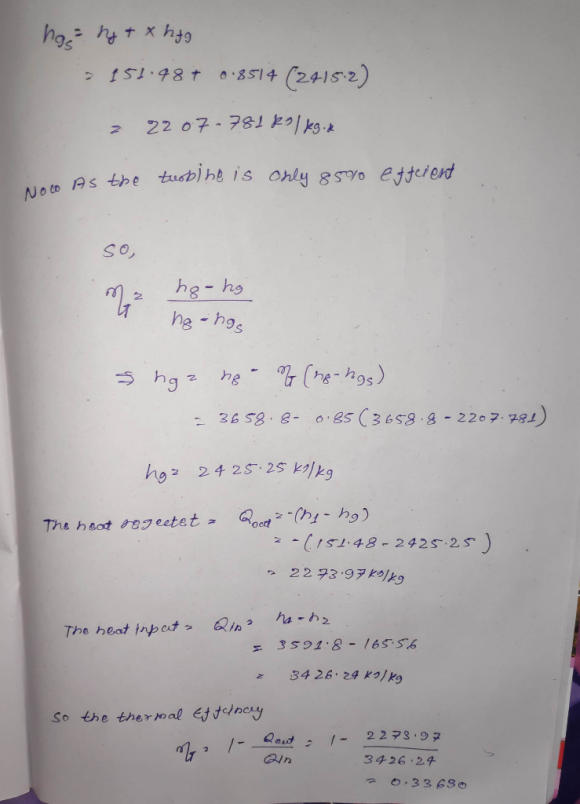 h9s = hf + x hfg
= 151.48 + 0.8514 (2415.2)
= 2207.781 kJ/kg.k
Now As the turbine is only 85% efficient
so,
ηT = h8 - h9 / h8 - h9s
⇒ h9 = h8 - ηT (h8 - h9s)
= 3658.8 - 0.85 (3658.8 - 2207.781)
h9 = 2425.25 kJ/kg
The heat rejectet = Qout = -(h1 - h9)
= -(151.48 - 2425.25)
= 2273.97 kJ/kg
The heat input = Qin = h4 - h2
= 3591.8 - 165.56
= 3426.24 kJ/kg
so the thermal efficiency
ηT = 1 - Qout / Qin = 1 - 2273.97 / 3426.24
= 0.33630